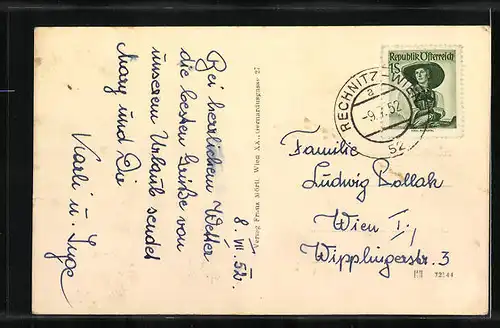 8. VII. 52.
Bei herrlichem Wetter
die besten Grüße von
unserem Urlaub sendet
Mary und Die
Karli u. Inge
Verlag Franz Mörtl, Wien XX., Gerhardusgasse 27
Republik Österreich
1S
RECHNITZ
a
-9.
52
Familie
Ludwig Pollak
Wien I.
Wipplingerstr. 3
72144